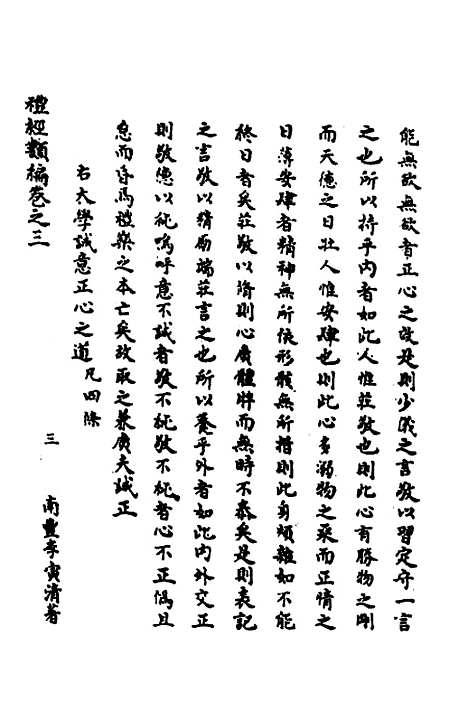 能無欲無欲者正心之效是則少儀之言敬以習定守一言
之也所以持乎内者如此人惟莊敬也則此心有勝物之剛
而天德之日壯人惟安肆也則此心多溺物之柔而正情之
日薄安肆者精神無所依形骸無所措則此身煩雜如不能
終日者矣莊敬以脩則心廣體胖而無時不泰矣是則表記
之言敬以精而端莊言之也所以養乎外者如此内外交正
則敬德以純嗚呼意不誠者敬不純敬不純者心不正偽且
怠而昏焉禮樂之本亡矣故取之兼廣夫誠正
右大學誠意正心之道凡四條
禮經類編卷之三
三
南豐李寅清著